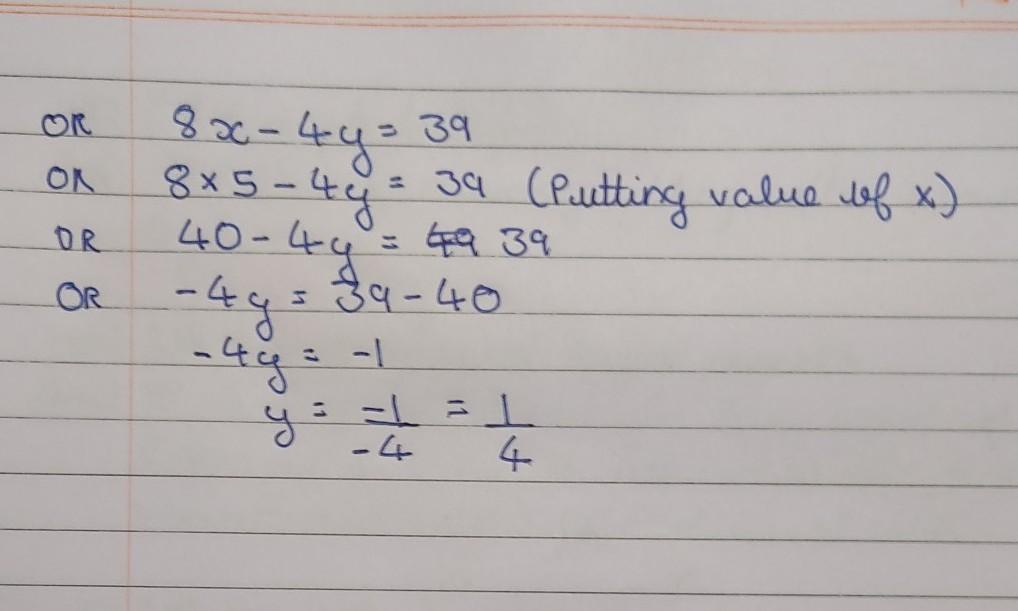 OR 8x - 4y = 39
OR 8 × 5 - 4y = 39 (Putting value of x)
OR 40 - 4y = 39
OR -4y = 39 - 40
-4y = -1
y = -1/-4 = 1/4